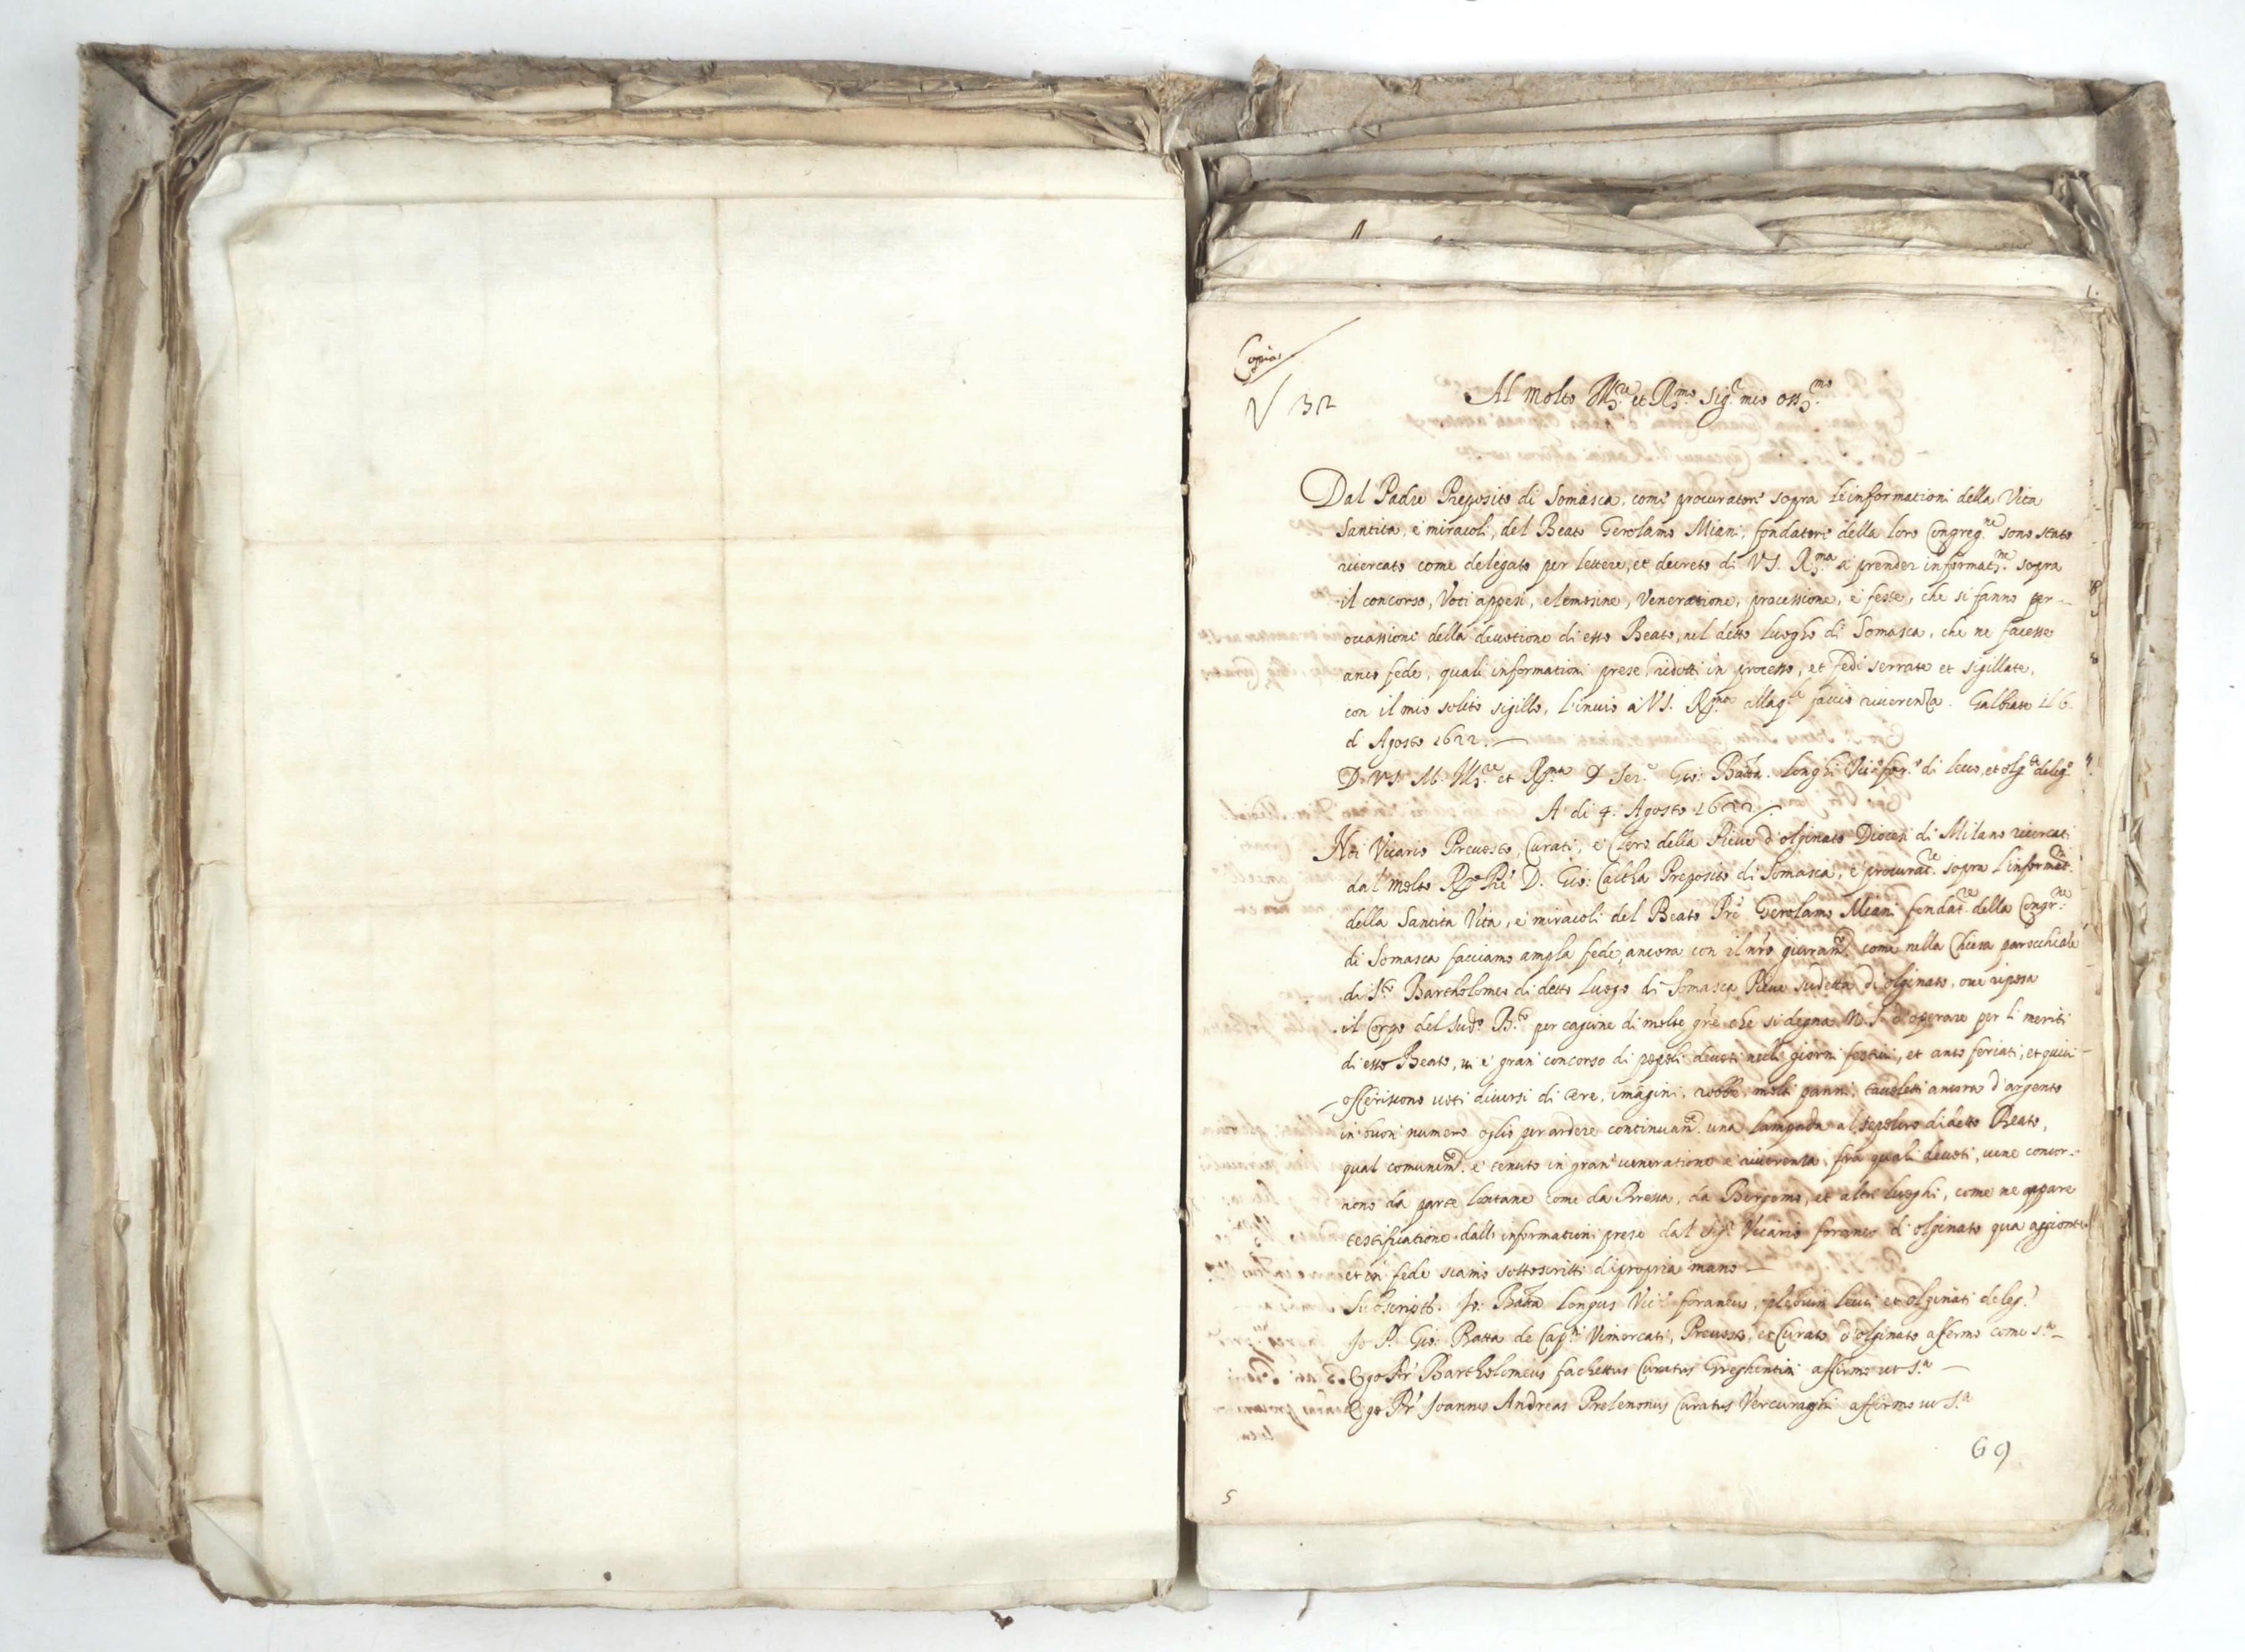 Copia
N 32
Al Molto Ill.re et R.mo Sig.r mio oss.mo
Dal Padre Preposito di Somasca, come procuratore sopra le informationi della Vita
Santita, e miracoli, del Beato Gerolamo Miani, fondatore della loro Congreg.ne sono stato
ricercato come delegato per lettere, et decreto di V.S. R.ma a prender informat.ne sopra
il concorso, Voti appesi, elemosine, Veneratione, processione, e feste, che si fanno per
occassione della devotione di esso Beato, nel detto luogho di Somasca, che ne facesse
anco fede, quali informationi prese, ridotti in processo, et fedi serrate et sigillate,
con il mio solito sigillo, l'invio a V.S. R.ma alla q.le faccio riverenza. Galbiate il 6.
d Agosto 1622.
D. V.S. M. Ill.re et R.ma Ser.e Gio: Batta. Longhi Vic.o for.o di Lecco, et olg.to deleg.o
A di 4. Agosto 1622.
Noi Vicario Prevosto, Curati, e Clero della Pieve d'olginato Diocesi di Milano ricercati
dal molto R.do Prē D. Gio: Preposito di Somasca, e procurat.re sopra l'informat.ni
della Santita Vita, e miracoli del Beato Prē Gerolamo Miani fondat.re della Congr.ne
di Somasca facciamo ampla fede, ancora con il nrō giuram.to come nella Chiesa parocchiale
di S.to Bartholomeo di detto luogo di Somasca Pieve sudetta di olginato, ove riposa
il Corpo del sud.o B.to per cagione di molte grē che si degna N.S. d'operare per li meriti
di esso Beato, vi è gran concorso di popoli devoti nelli giorni festivi, et anco feriati, et quivi
offeriscono voti diversi di cere, imagini, robbe, molti panni, tavolette ancora d'argento
in buon numero oglio per ardere continuam.te una lampada al sepolcro di detto Beato,
qual comunem.te è tenuto in gran veneratione e riverenza, fra quali devoti, vene concor-
rono da parte lontane come da Bressa, da Bergomo, et altri luoghi, come ne appare
testificatione dalli informationi prese dal sig.r Vicario foraneo di olginato qua aggionte,
et in fede siamo sottoscritti di propria mano
Subscript. Jo: Batta Longus Vic.s foraneus, plebium Leuci et olginati deleg.s
Io P. Gio: Batta de Cap.i Vimercati, Prevosto, et Curato d'olginato affermo come s.a
Ego Pr̄ Bartholomeus fachettus Curatus Greghentini affirmo ut s.a
Ego Pr̄ Joannes Andreas Curatus Vercuraghi affirmo ut s.a
69
5